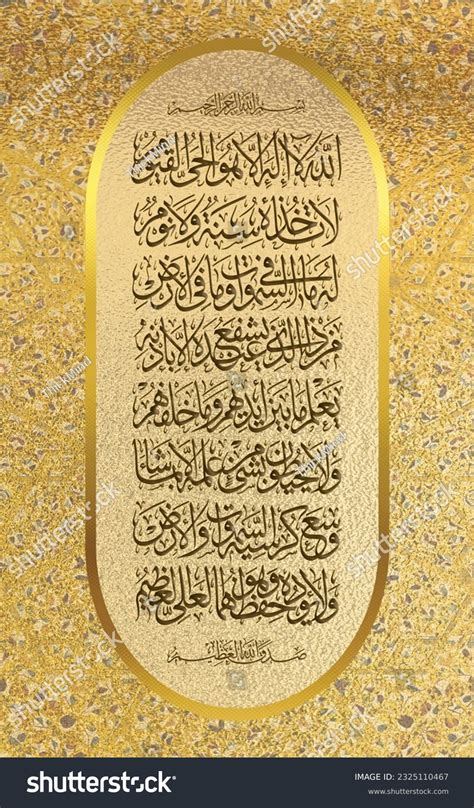 بسم الله الرحمن الرحيم
الله لا إله إلا هو الحي القيوم
لا تأخذه سنة ولا نوم
له ما في السموات وما في الأرض
من ذا الذي يشفع عنده إلا بإذنه
يعلم ما بين أيديهم وما خلفهم
ولا يحيطون بشيء من علمه إلا بما شاء
وسع كرسيه السموات والأرض
ولا يؤده حفظهما وهو العلي العظيم
صدق الله العظيم
shutterstock
IMAGE ID: 2325110467
www.shutterstock.com